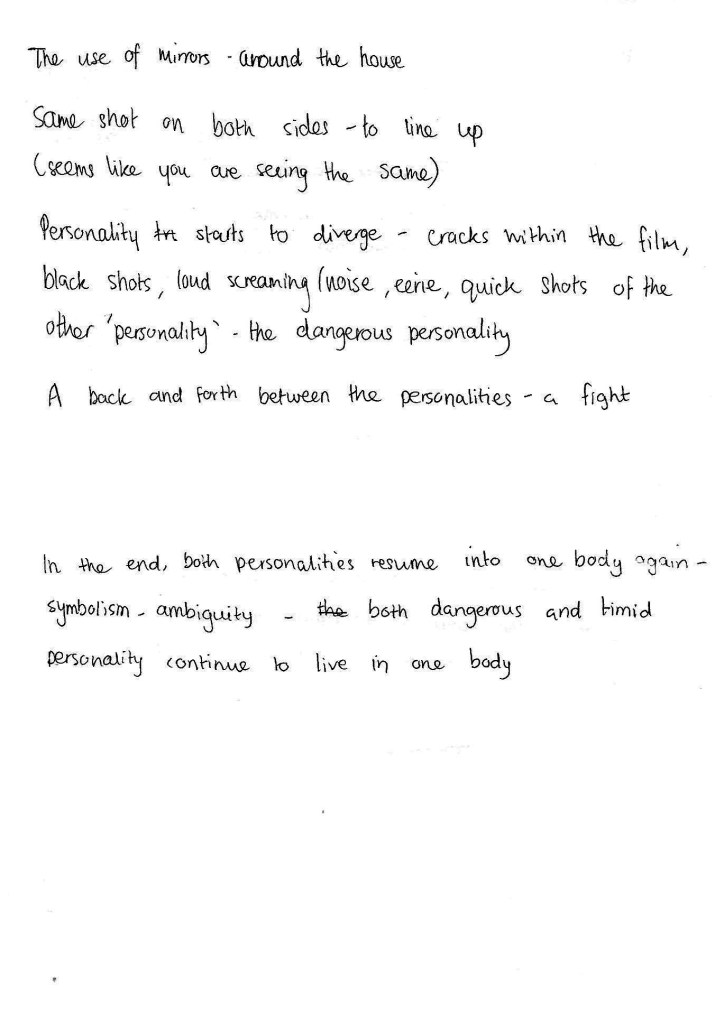 The use of mirrors - around the house
Same shot on both sides - to line up
(seems like you are seeing the same)
Personality starts to diverge - cracks within the film,
black shots, loud screaming (noise, eerie, quick shots of the
other 'personality' - the dangerous personality
A back and forth between the personalities - a fight
In the end, both personalities resume into one body again -
symbolism - ambiguity - the both dangerous and timid
personality continue to live in one body